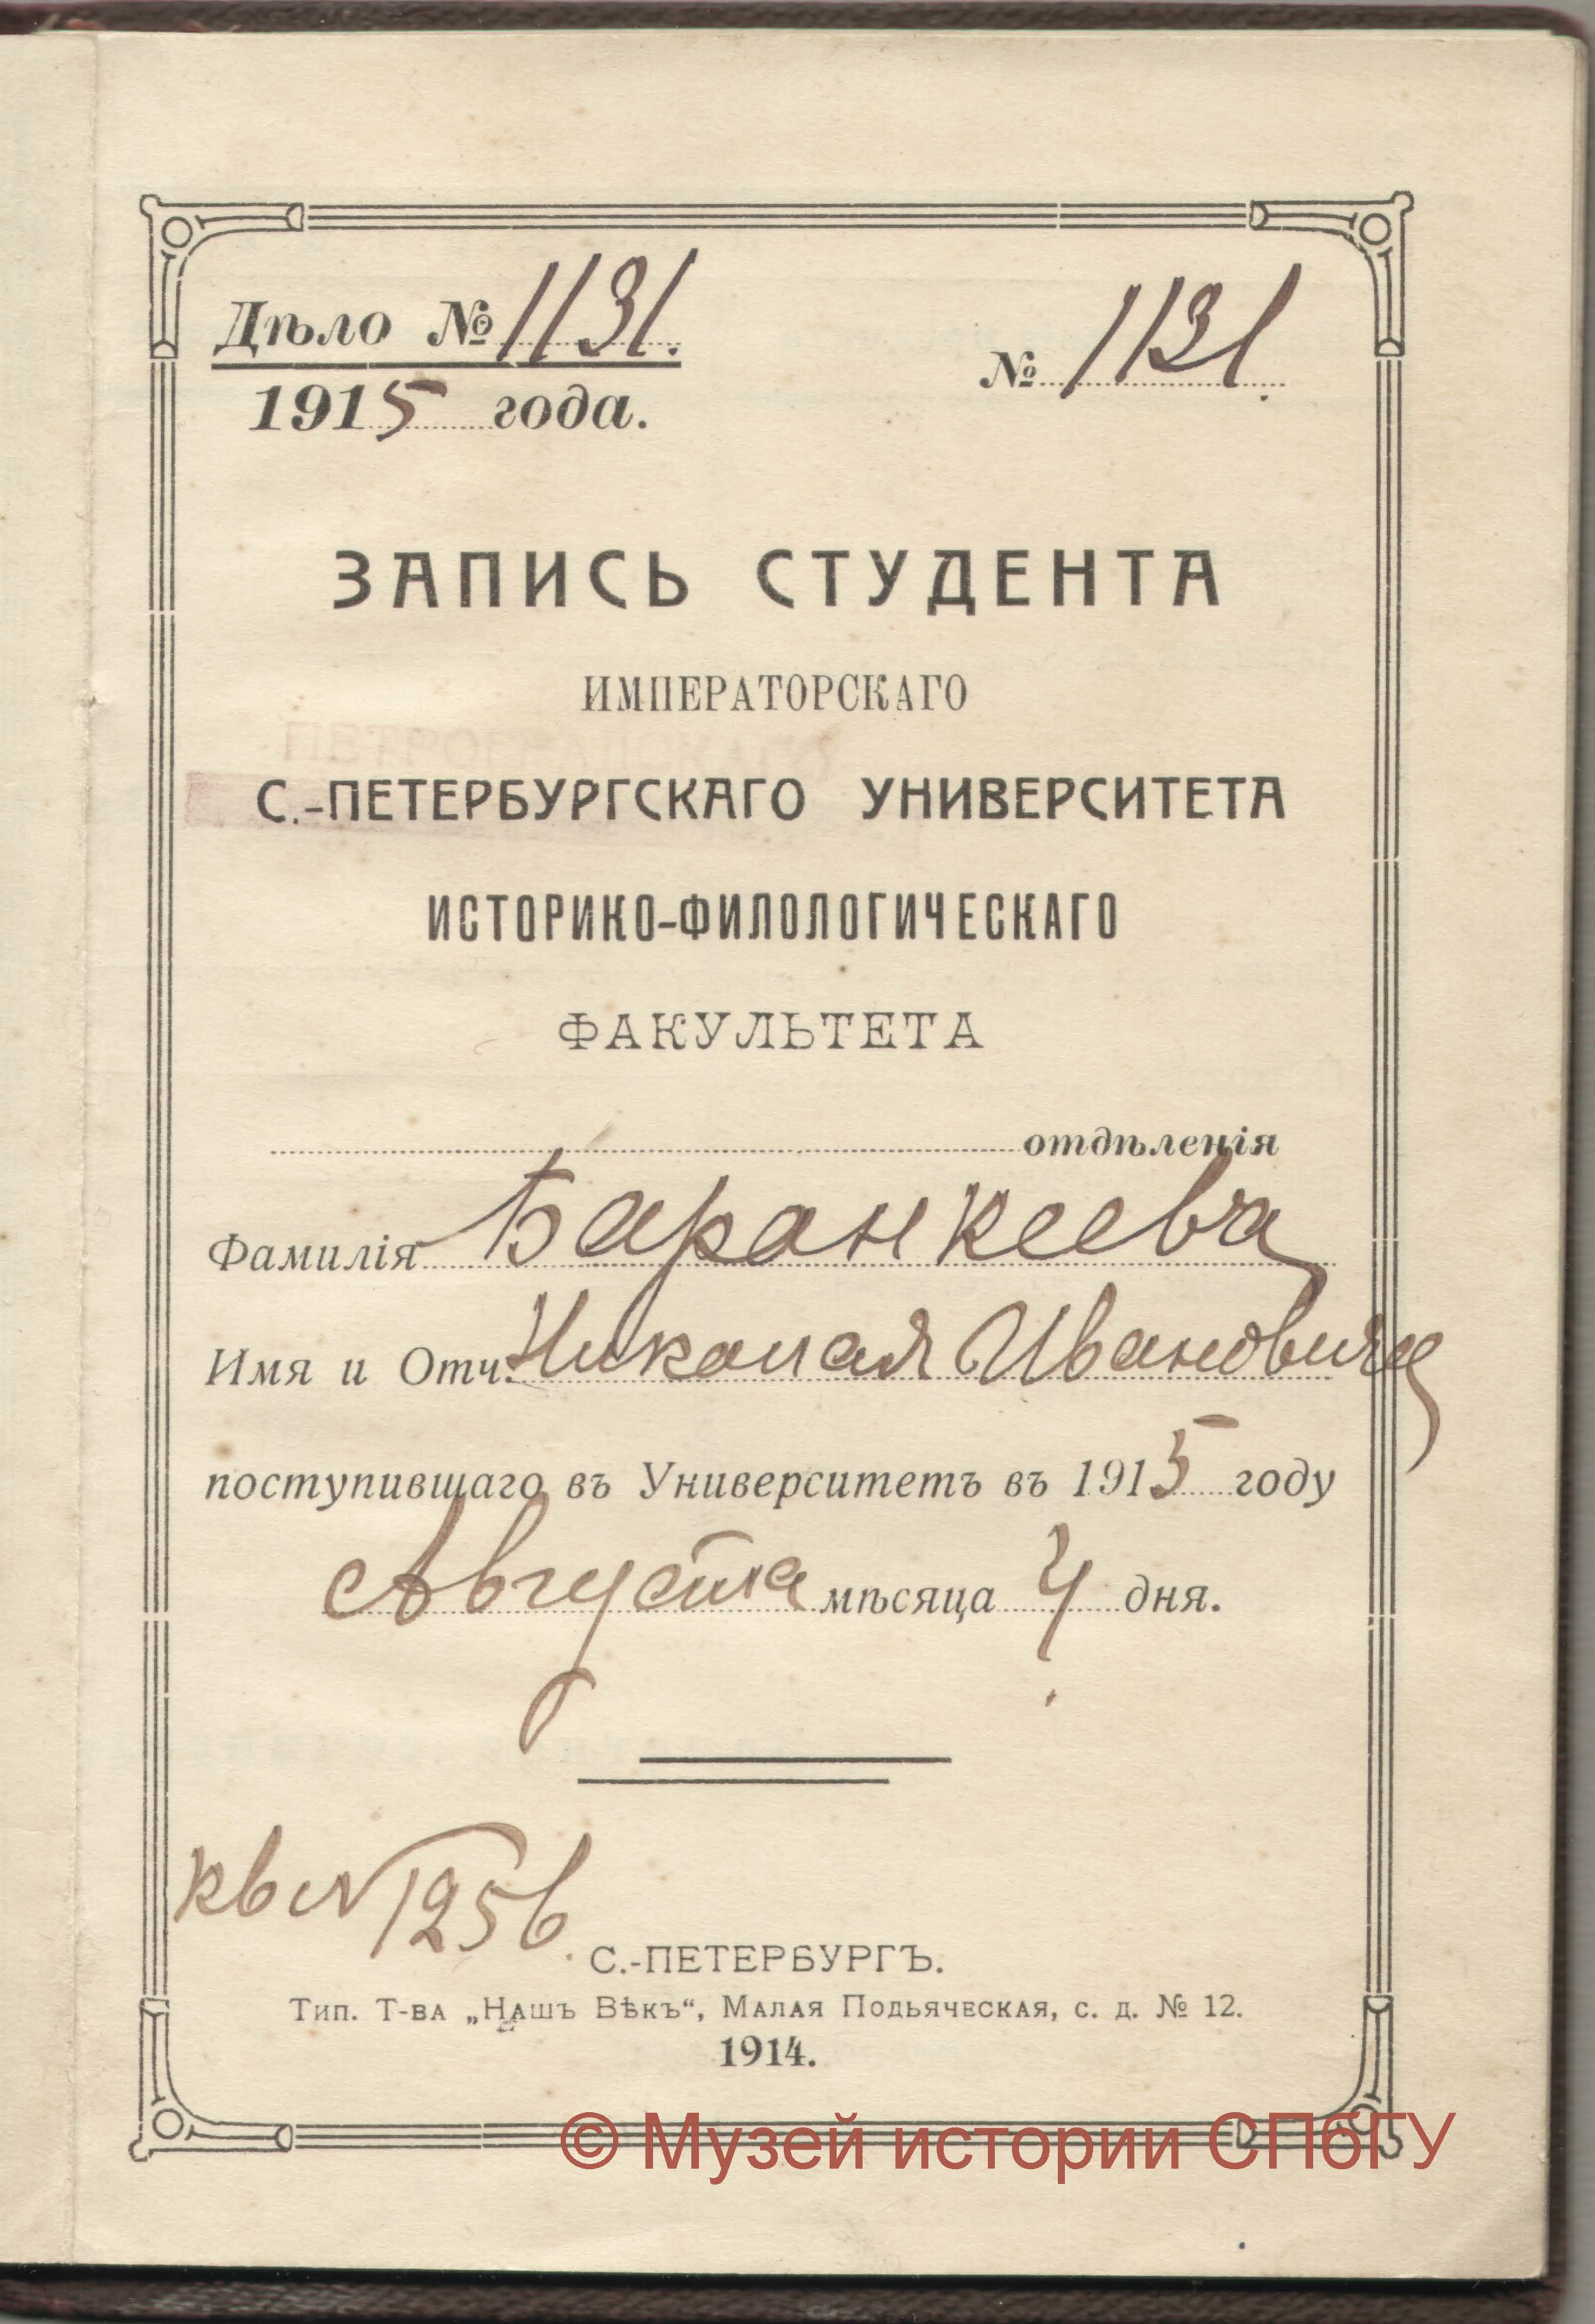 Дѣло № 1131.
№ 1131.
1915 года.
ЗАПИСЬ СТУДЕНТА
ИМПЕРАТОРСКАГО
С.-ПЕТЕРБУРГСКАГО УНИВЕРСИТЕТА
ИСТОРИКО-ФИЛОЛОГИЧЕСКАГО
ФАКУЛЬТЕТА
отдѣленія
Фамилія Баранкеева
Имя и Отч. Николая Ивановича
поступившаго въ Университетъ въ 1915 году
Августа мѣсяца 4 дня.
кв № 1256.
С.-ПЕТЕРБУРГЪ.
Тип. Т-ва „Нашъ Вѣкъ“, Малая Подьяческая, с. д. № 12.
1914.
© Музей истории СПбГУ